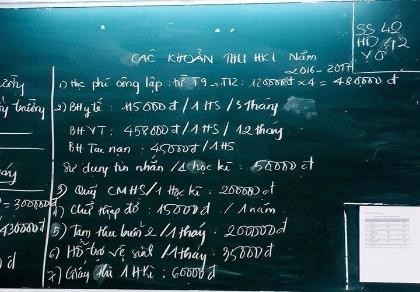 SS 42
HD 42
V 0
CÁC KHOẢN THU HKI Năm
2016-2017
1) Học phí công lập: từ T9→T12: 120000đ x4 = 480000 đ
2) BH y tế: 115000đ / 1HS / 3 tháng
BHYT: 458000đ / 1HS / 12 tháng
BH Tai nạn: 45000đ / 1HS
Sử dụng tin nhắn / 1 học kì: 50000 đ
3) Quỹ CMHS / 1 Học kì: 200000 đ
4) Chữ thập đỏ: 15000 đ / 1 năm
5) Tạm thu buổi 2 / 1 tháng: 200000 đ
6) Hỗ trợ vệ sinh / 1 tháng: 35000
7) Giấy thi 1 HKì: 60000 đ
trường
= 300000
430000 đ
đ